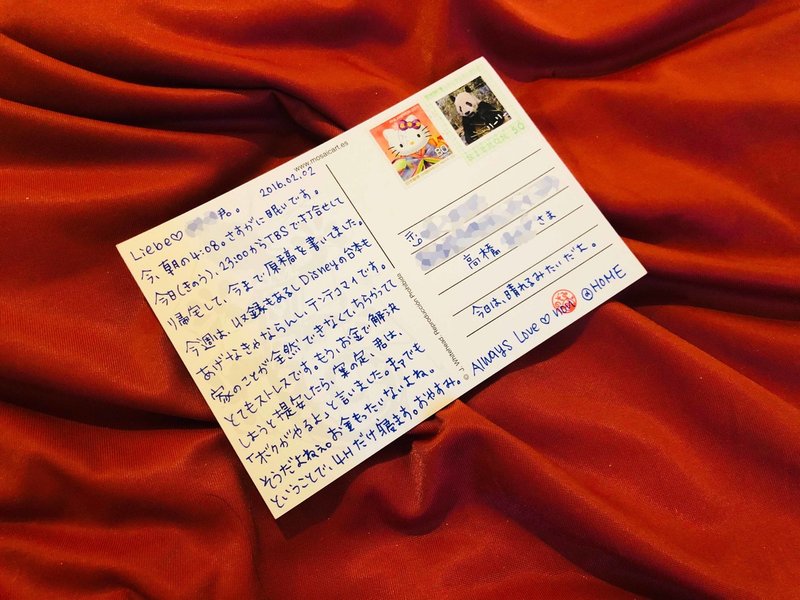 Liebe♡ 君。 2016.02.02
今、朝の4:08。さすがに眠いです。
今日(きのう)、23:00からTBSで打合せして
帰宅して、今まで原稿を書いてました。
今週は、収録もあるしDisneyの台本も
あげなきゃならんし、テンテコマイです。
家のことが全然できなくてちらかってて
とてもストレスです。もう、お金で解決
しようと提案したら、案の定、君は、
「ボクがやるよ」と言いました。まァでも
そうだよねぇ。お金もったいないよね。
ということで、4Hだけ寝ます。おやすみ。
www.mosaicart.es
Reproducción Prohibida
80
NIPPON 50
〒
高橋 さま
今日は、晴れるみたいだよ。
Always Love♡ non @HOME